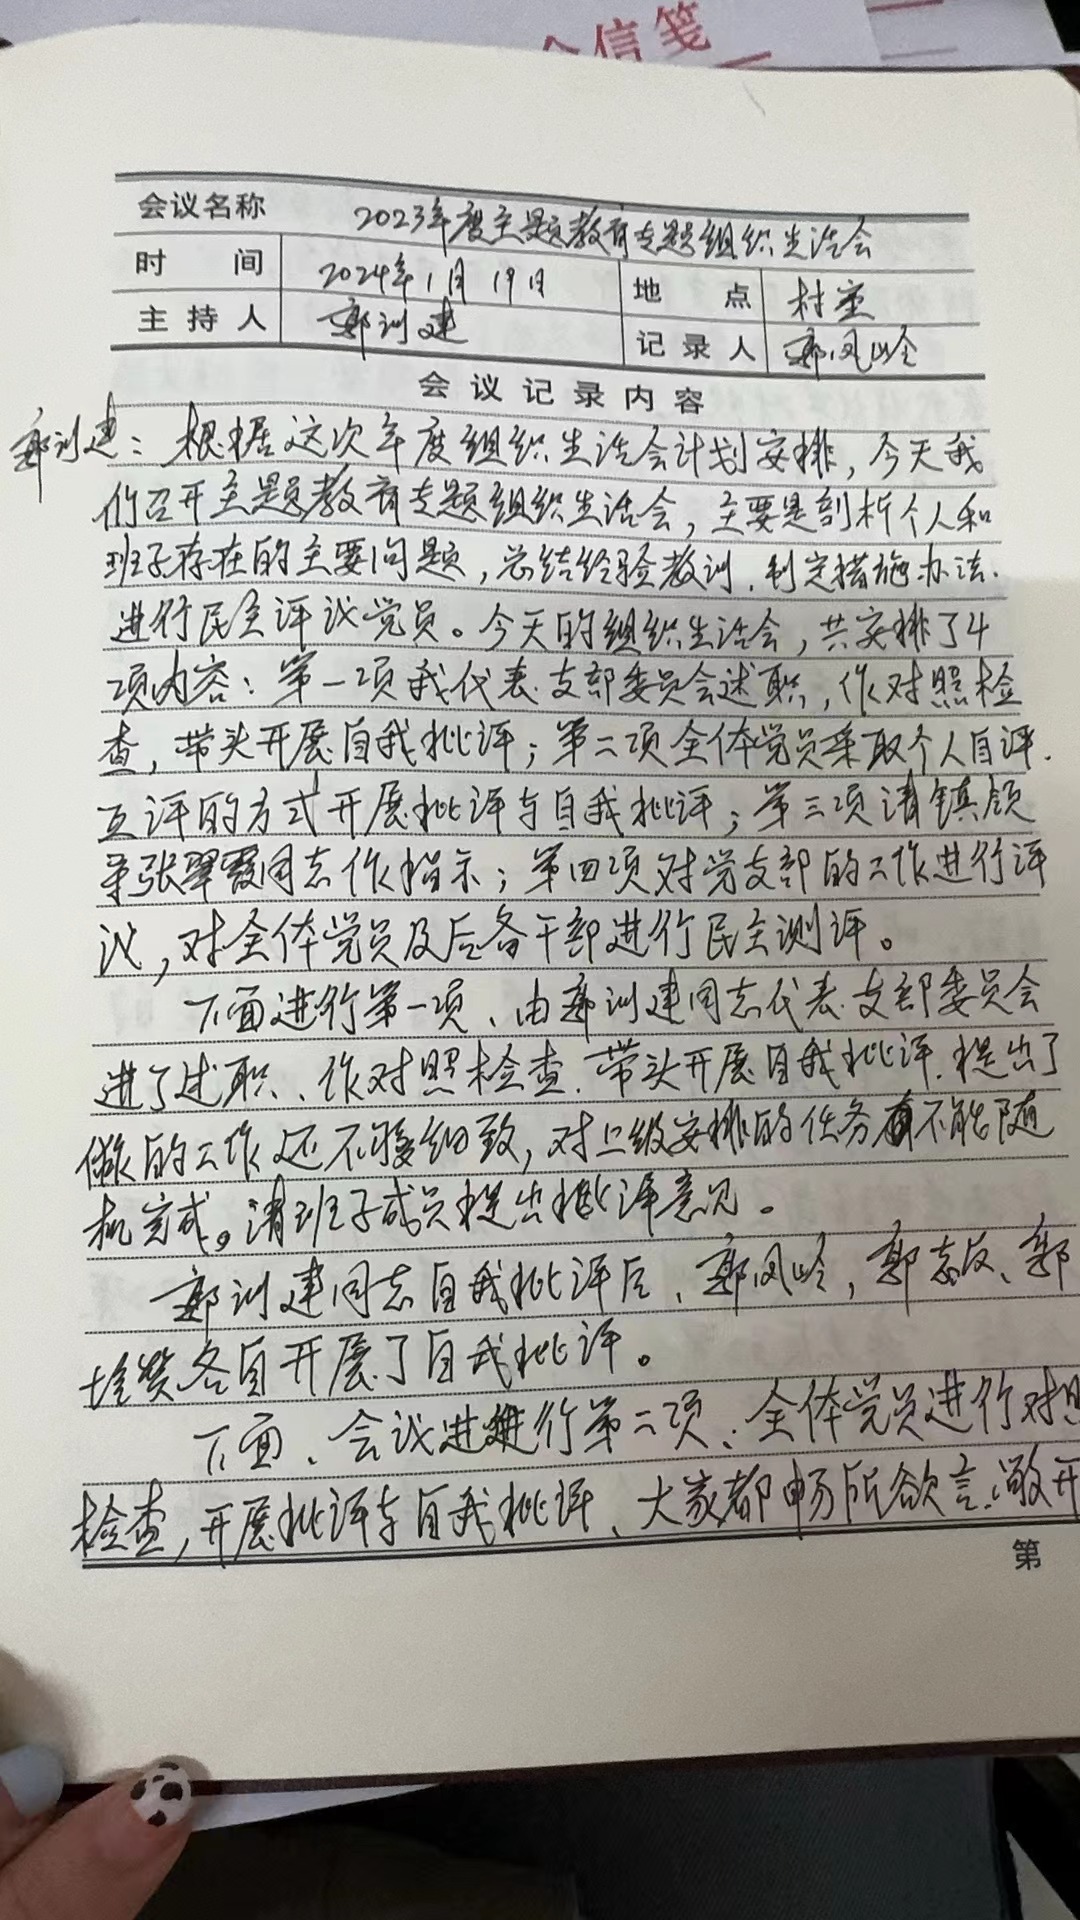 信笺
会议名称 2023年度主题教育专题组织生活会
时 间 2024年1月19日 地 点 村室
主持人 郭训建 记录人 郭凤岭
会议记录内容
郭训建：根据这次年度组织生活会计划安排，今天我
们召开主题教育专题组织生活会，主要是剖析个人和
班子存在的主要问题，总结经验教训、制定措施办法、
进行民主评议党员。今天的组织生活会，共安排了4
项内容：第一项我代表支部委员会述职，作对照检
查，带头开展自我批评；第二项全体党员采取个人自评、
互评的方式开展批评与自我批评；第三项请镇领
导张翠霞同志作指示；第四项对党支部的工作进行评
议，对全体党员及后备干部进行民主测评。
下面进行第一项、由郭训建同志代表支部委员会
进了述职、作对照检查、带头开展自我批评、提出了
做的工作还不够细致，对上级安排的任务有不能随
机完成。请班子成员提出批评意见。
郭训建同志自我批评后、郭凤岭，郭志、郭
各自开展了自我批评。
下面、会议进行第二项、全体党员进行对照
检查，开展批评与自我批评、大家都畅所欲言、敞开
第